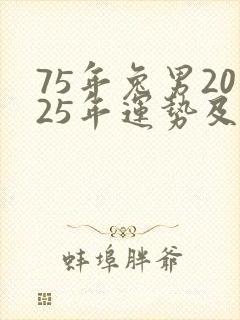 75年兔男20
25年運势及
蚌埠胖爺